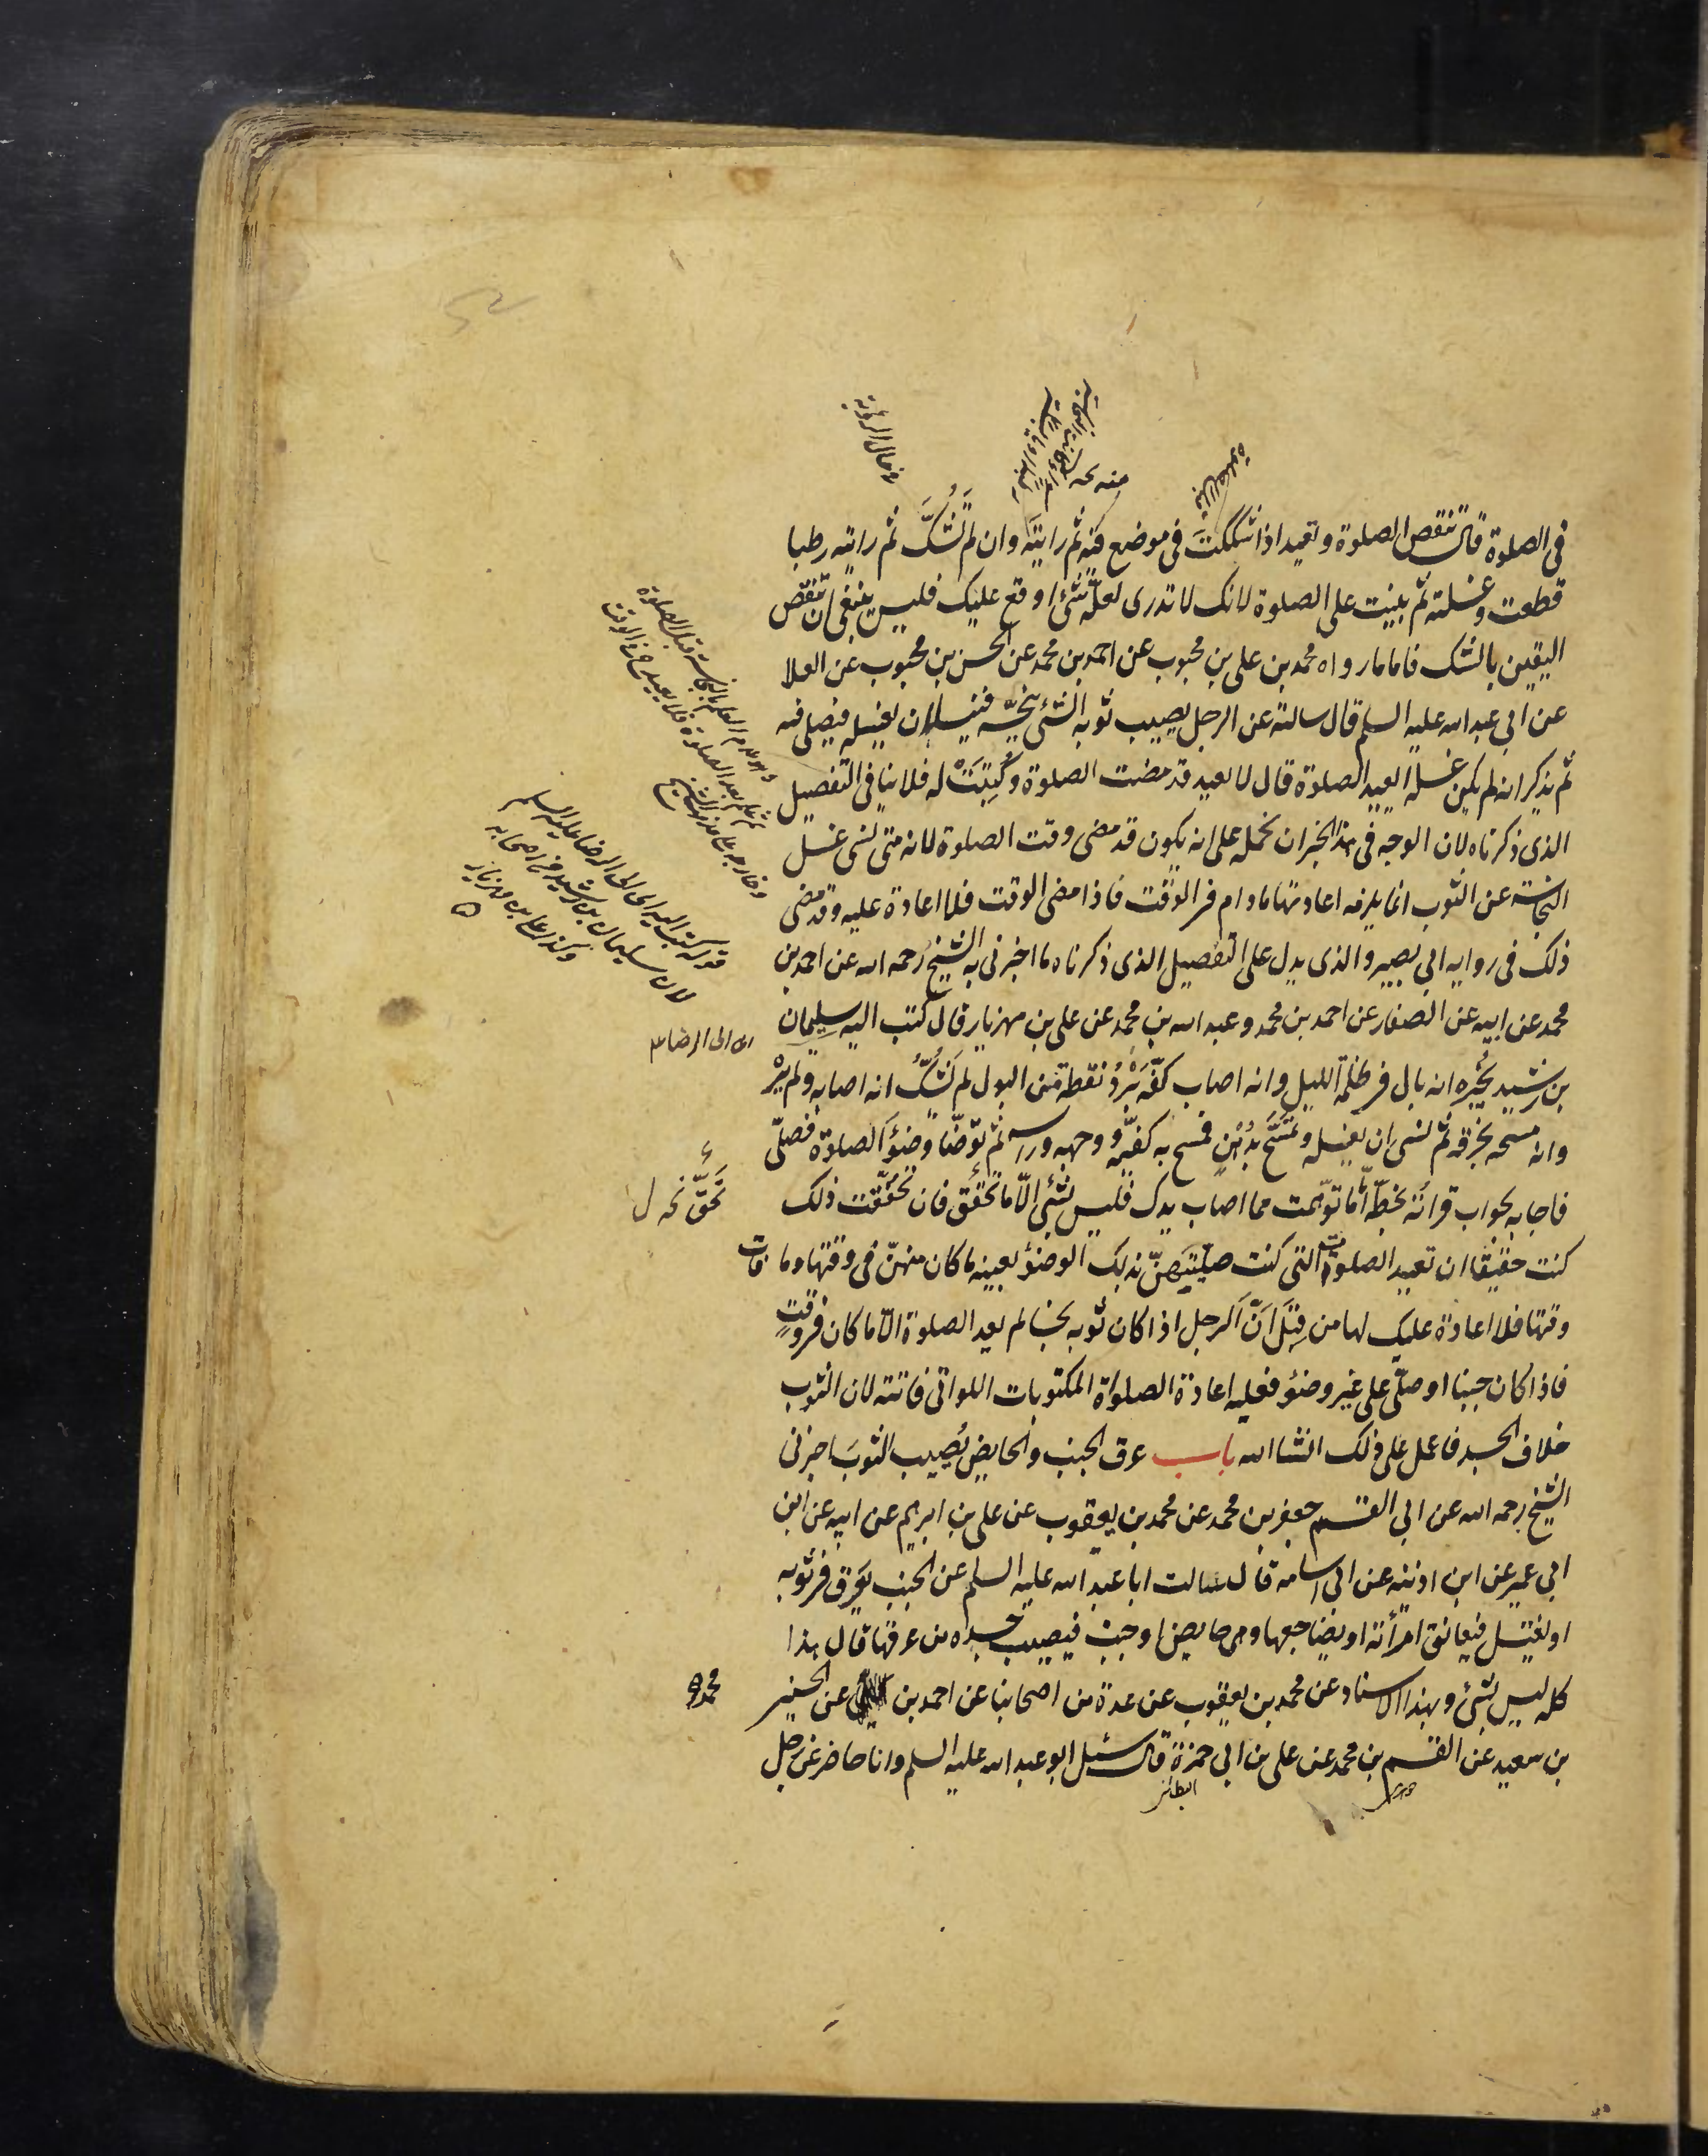 في الصلوة قال تنقض الصلوة وتعيد اذا شككت في موضع منه ثم رايته وان لم تشك ثم رايته رطبا
قطعت وغسلته ثم بنيت على الصلوة لانك لا تدري لعله شئ اوقع عليك فليس ينبغي ان تنقض
اليقين بالشك فاما ما رواه محمد بن علي بن محبوب عن احمد بن محمد عن الحسن بن محبوب عن العلا
عن ابي عبد الله عليه السلم قال سالته عن الرجل يصيب ثوبه الشئ ينجسه فينسى ان يغسله فيصلي فيه
ثم يذكر انه لم يكن غسله ايعيد الصلوة قال لا يعيد قد مضت الصلوة وكتبت له فلا ينافي التفصيل
الذي ذكرناه لان الوجه في هذا الخبر ان نحمله على انه يكون قد مضى وقت الصلوة لانه متى نسى غسل
النجاسة عن الثوب انما يلزمه اعادتها ما دام في الوقت فاذا مضى الوقت فلا اعادة عليه وقد مضى
ذلك في رواية ابي بصير والذي يدل على التفصيل الذي ذكرناه ما اخبرني به الشيخ رحمه الله عن احمد بن
محمد عن ابيه عن الصفار عن احمد بن محمد وعبد الله بن محمد عن علي بن مهزيار قال كتب اليه سليمان
اى الى الرضا ع
بن رشيد يخبره انه بال في ظلمة الليل وانه اصاب كفه برد نقطة من البول لم يشك انه اصابه ولم يره
وانه مسحه بخرقة ثم نسى ان يغسله وتمسح بدهن فمسح به كفيه ووجهه وراسه ثم توضا وضوء الصلوة فصلى
فاجابه بجواب قراته بخطه اما ما توهمت مما اصاب يدك فليس بشئ الا ما تحقق فان تحققت ذلك
كنت حقيقا ان تعيد الصلوة التي كنت صليتهن بذلك الوضوء بعينه ما كان منهن في وقتها وما فات
وقتها فلا اعادة عليك لها من قبل ان الرجل اذا كان ثوبه نجسا لم يعد الصلوة الا ما كان في وقت
فاذا كان جنبا او صلى على غير وضوء فعليه اعادة الصلوات المكتوبات اللواتي فاتته لان الثوب
خلاف الجسد فاعمل على ذلك انشا الله باب عرق الجنب والحايض يصيب الثوب اخبرني
الشيخ رحمه الله عن ابي القسم جعفر بن محمد عن محمد بن يعقوب عن علي بن ابرهيم عن ابيه عن ابن
ابي عمير عن ابن اذينه عن ابي اسامة قال سالت ابا عبد الله عليه السلم عن الجنب يعرق في ثوبه
او يغتسل فيعانق امرأته او يضاجعها وهي حايض او جنب فيصيب جسده من عرقها قال هذا
كله ليس بشئ وبهذا الاسناد عن محمد بن يعقوب عن عدة من اصحابنا عن احمد بن عن الحسين
محمد
بن سعيد عن القسم بن محمد عن علي بن ابي حمزة قال سئل ابو عبد الله عليه السلم وانا حاضر عن رجل
قوله كتب اليه اى الى الرضا عليه السلم
لان سليمان بن رشيد من اصحابه
وكذا علي بن مهزيار
في حال الرؤية